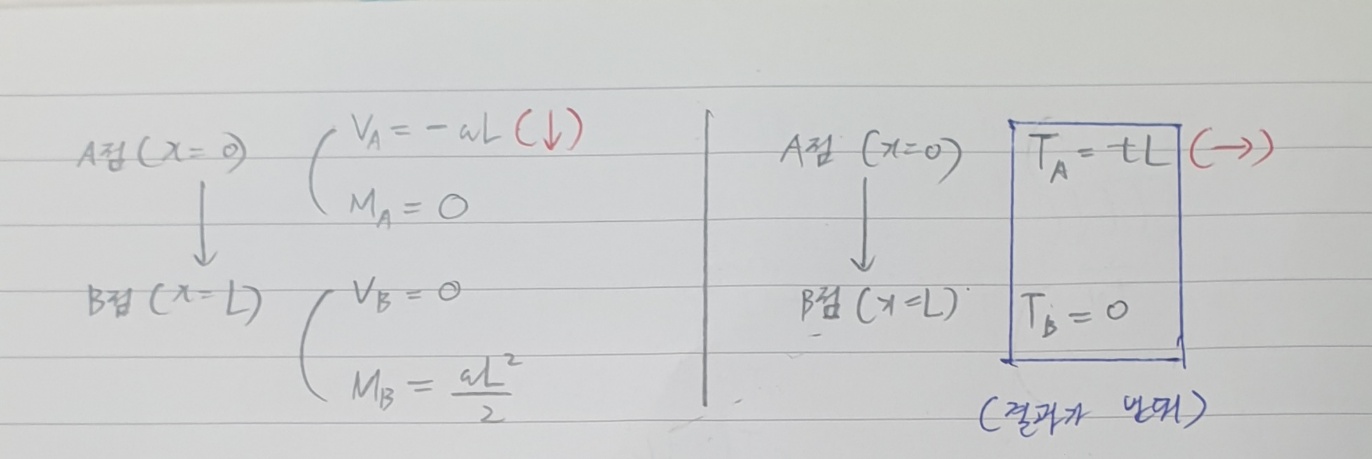 A점 (x=0)
V_A = -ωL (↓)
M_A = 0
B점 (x=L)
V_B = 0
M_B = ωL²/2
A점 (x=0)
T_A = tL (→)
B점 (x=L)
T_B = 0
(결과가